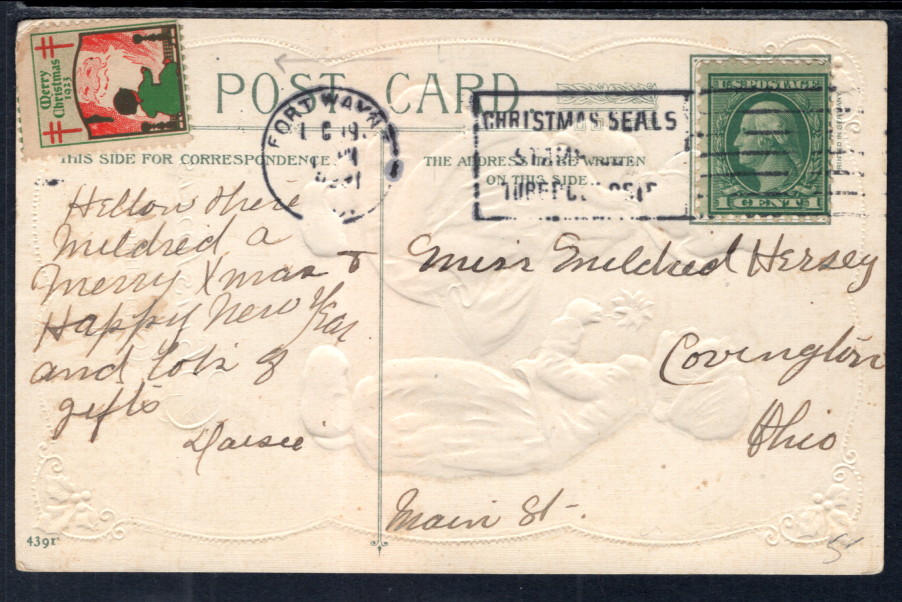 Merry
Christmas
1923
POST CARD
THIS SIDE FOR CORRESPONDENCE.
THE ADDRESS TO BE WRITTEN
ON THIS SIDE
FORT WAYNE
CHRISTMAS SEALS
U.S. POSTAGE
1 CENT 1
Hellow there
Mildred a
Merry Xmas &
Happy New Year
and lots of
gifts
Daisie
Miss Mildred Hersey
Covington
Ohio
Main St-.
4391